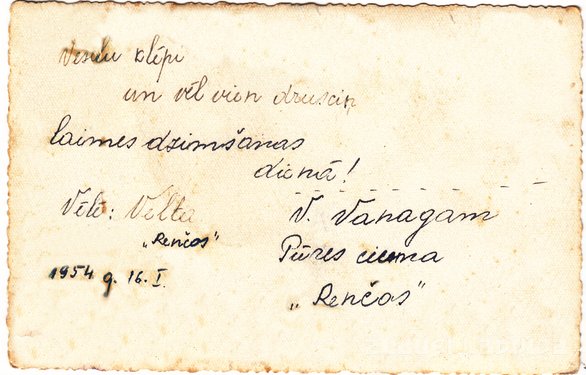 Veselu klēpi
un vēl vien druscin
laimes dzimšanas
dienā!
Vēlē: Velta
„Renčos"
1954 g. 16. I.
V. Vanagam
Pūres ciema
„Renčos"